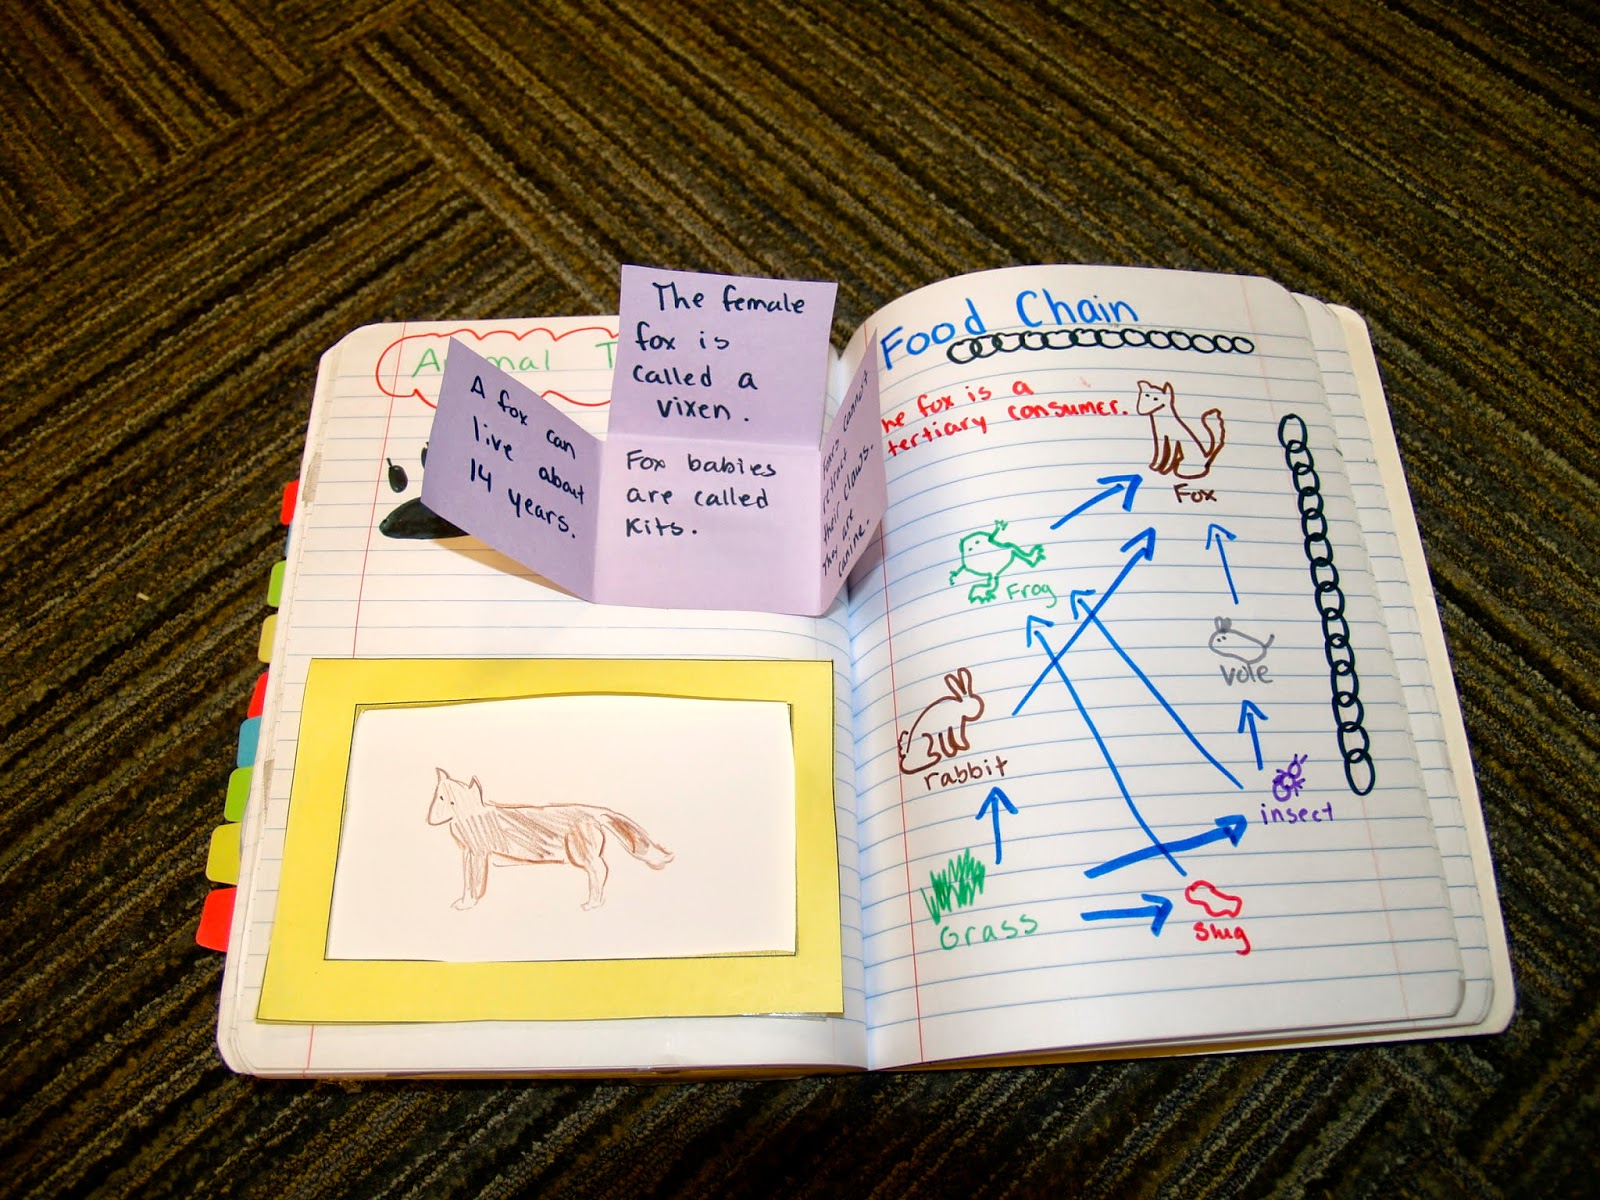 Animal T
The female
fox is
called a
vixen.
A fox can
live about
14 years.
Fox babies
are called
Kits.
cannot
retract
their claws.
They are
canine.
Food Chain
he fox is a
tertiary consumer.
Fox
Frog
vole
rabbit
insect
Grass
Slug